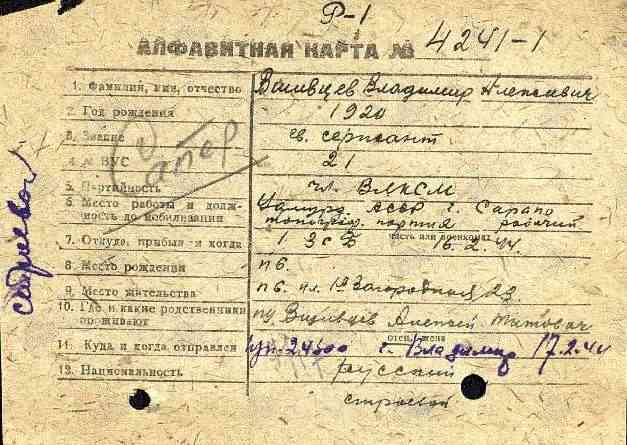 Р-1
АЛФАВИТНАЯ КАРТА № 4241-1
1. Фамилия, имя, отчество Владимир Алексеевич
2. Год рождения 1920
3. Звание гв. сержант
4. № ВУС 21
сапер
5. Партийность чл. ВЛКСМ
6. Место работы и долж-
ность до мобилизации АССР г. партия рабочий
7. Откуда прибыл и когда 1 ЗСП часть или военкомат 16.2.44.
8. Место рождения п 6.
9. Место жительства п 6. ул. 1я Загородная 23
10. Где и какие родственники
проживают Алексей Титович
отец, жена
11. Куда и когда отправлен г. Владимир 17.2.44
13. Национальность русский
строевой